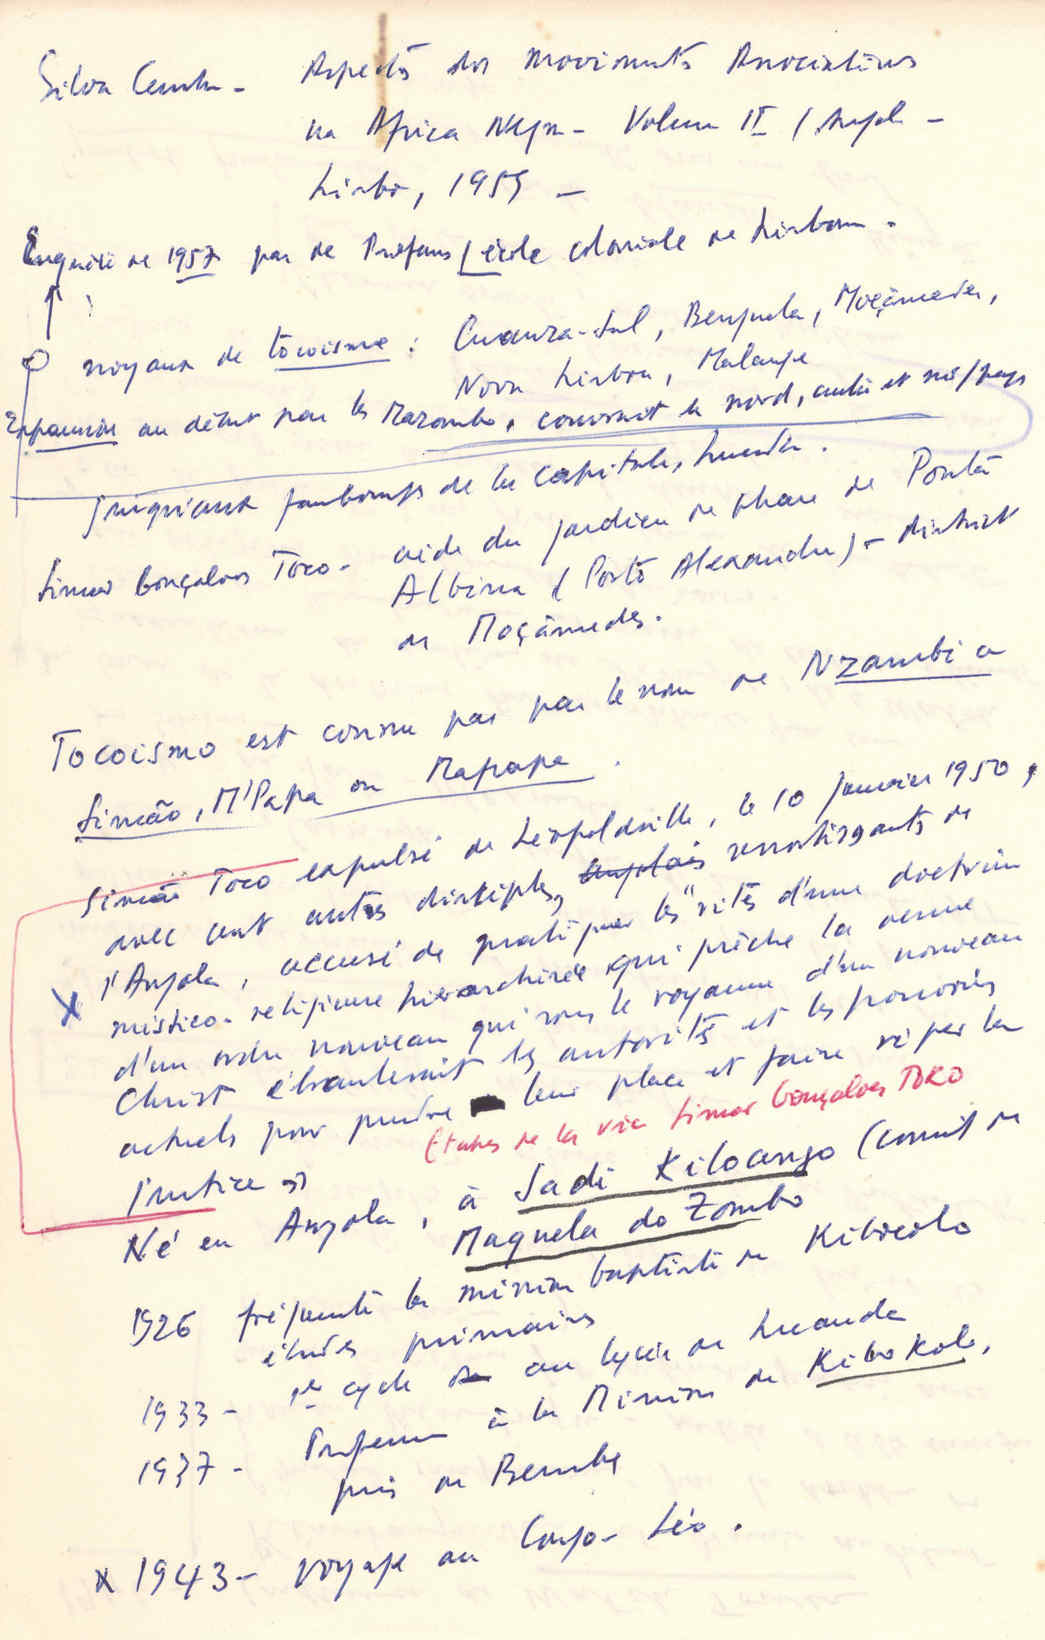 Silva Cunha - Aspects dos movimentos Associativos
na Africa Negra - Volume II (Angola -
Lisboa, 1959 -
Enquête de 1957 par de Profess / école coloniale de Lisbonne.
noyaux de tocoisme : Cuanza-Sul, Benguela, Moçâmedes,
Nova Lisboa, Malange
Expansion au début par les Mazombo, couvrait le nord, et
faubourgs de la capitale, Luanda.
Simao Gonçalves Toco - aide du gardien de phare de Ponta
Albina (Porto Alexandre) - district
de Moçâmedes.
Tocoismo est connu par par le nom de Nzambi a
Simão, M'Papa ou Mapapa.
Simão Toco expulsé de Léopoldville, le 10 janvier 1950,
avec cent autres disciples, Angolais ressortissants de
l'Angola, accusé de pratiquer les "rites d'une doctrine
mistico-religieuse hierarchisée qui prêche la venue
d'un ordre nouveau qui sous le royaume d'un nouveau
Christ ébranlerait les autorités et les pouvoirs
actuels pour prendre leur place et faire régner la
Justice »
Etapes de la vie Simao Gonçalves TOCO
Né en Angola, à Sadi Kiloango (
Maquela do Zombo
1926 fréquente la mission baptiste de Kibocolo
études primaires
1933 - 1er cycle au lycée de Luanda
1937 - Professeur à la Mission de KiboKolo,
puis de Bembe
x 1943 - voyage au Congo-Léo.